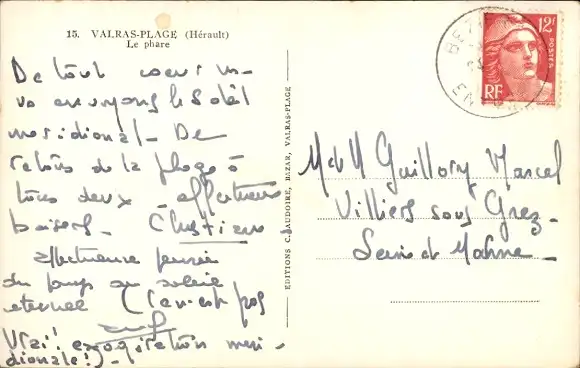 15. VALRAS-PLAGE (Hérault)
Le phare
De tout coeur n-
vs envoyons le Soleil
meridional - De
retour de la plage à
tous deux affectueux
baisers - Christiane
affectueuse pensée
du pays au soleil
eternel (Ça n'est pas
Vrai! exagération meri-
dionale!) -
EDITIONS C. BAUDOIRE, BAZAR, VALRAS-PLAGE
BEZ
12F
POSTES
RF
M et M Guillory Marcel
Villiers sous Grez -
Seine et Marne -